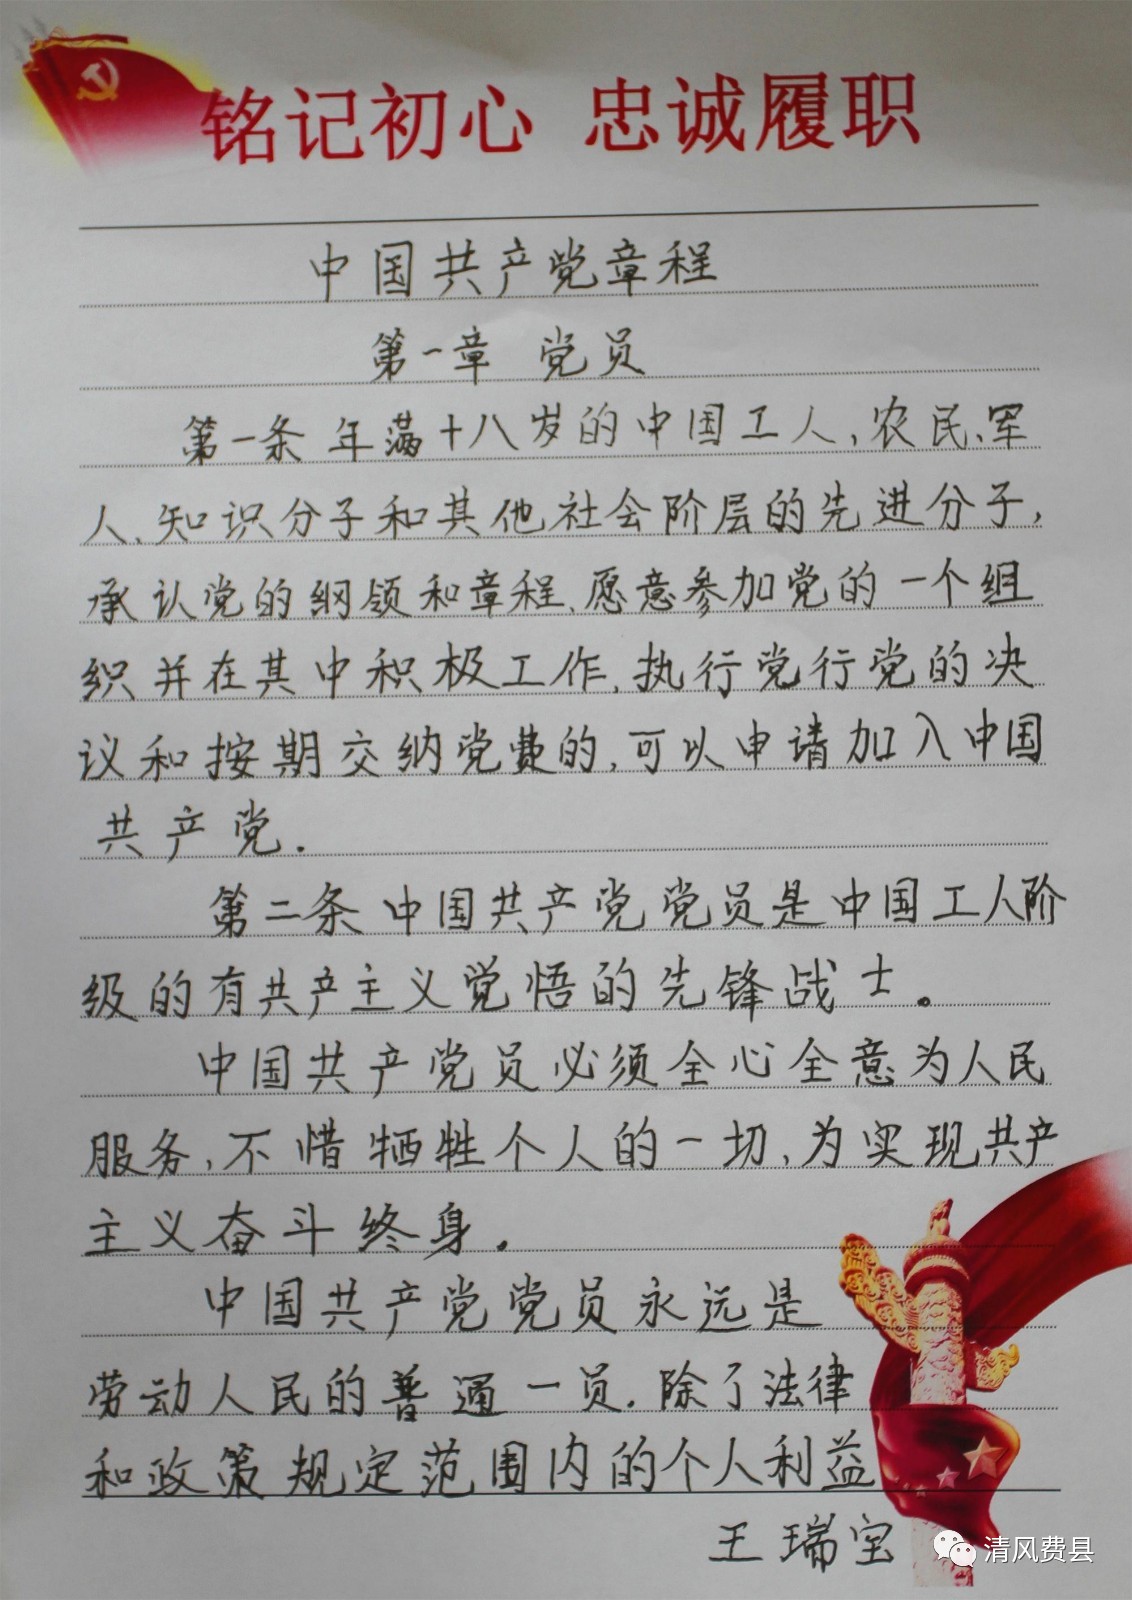 铭记初心 忠诚履职
中国共产党章程
第一章 党员
第一条 年满十八岁的中国工人、农民、军
人、知识分子和其他社会阶层的先进分子,
承认党的纲领和章程、愿意参加党的一个组
织并在其中积极工作、执行党行党的决
议和按期交纳党费的,可以申请加入中国
共产党.
第二条 中国共产党党员是中国工人阶
级的有共产主义觉悟的先锋战士。
中国共产党员必须全心全意为人民
服务,不惜牺牲个人的一切,为实现共产
主义奋斗终身。
中国共产党党员永远是
劳动人民的普通一员.除了法律
和政策规定范围内的个人利益
王瑞宝
清风费县